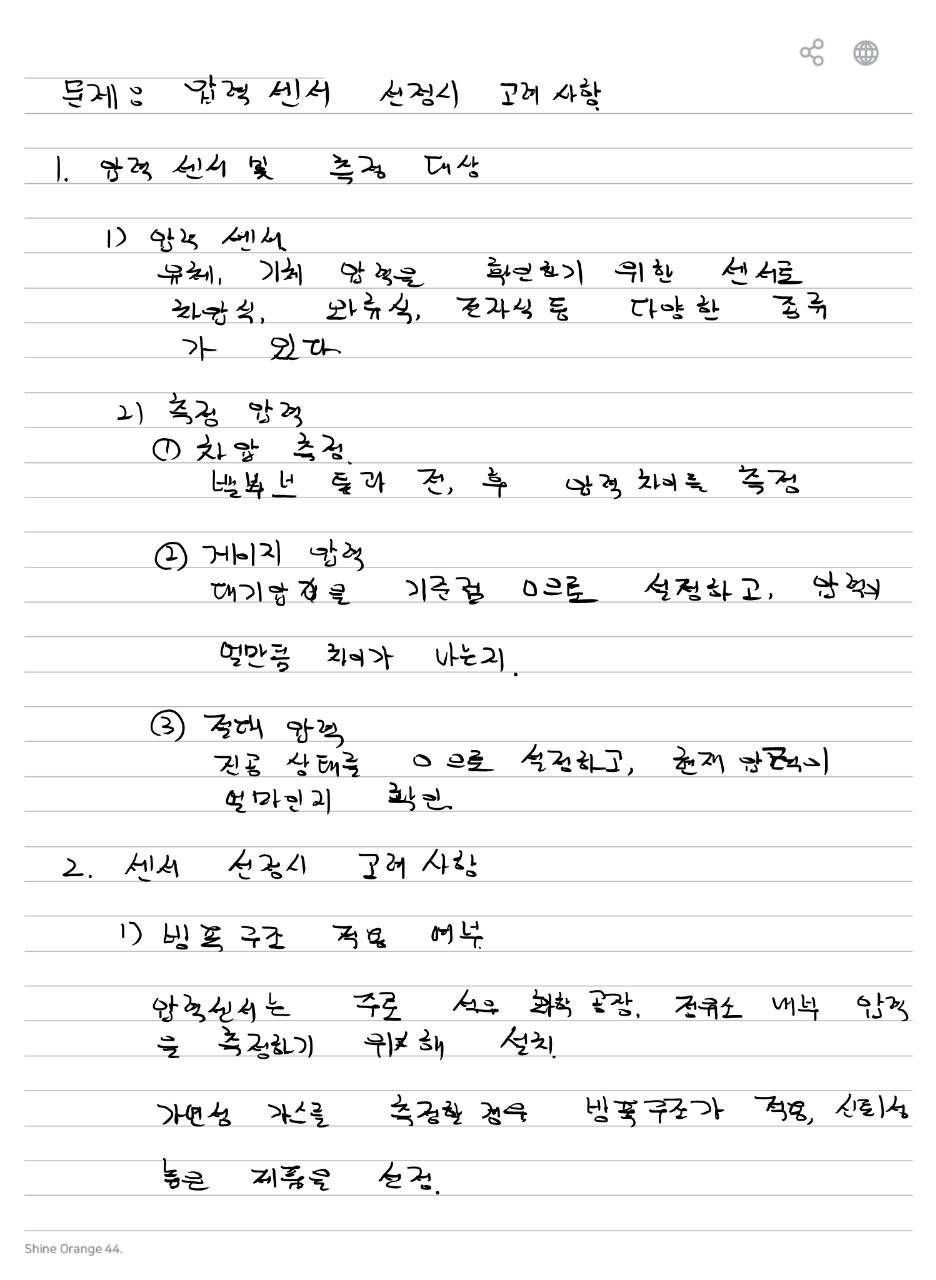 문제: 압력 센서 선정시 고려 사항
1. 압력 센서 및 측정 대상
1) 압력 센서
유체, 기체 압력을 확인하기 위한 센서로
차압식, 와류식, 전자식 등 다양한 종류
가 있다
2) 측정 압력
① 차압 측정.
밸브 통과 전, 후 압력 차이를 측정
② 게이지 압력
대기압을 기준점 0으로 설정하고, 압력이
얼만큼 차이가 나는지.
③ 절대 압력
진공 상태를 0 으로 설정하고, 현재 압력이
얼마인지 확인.
2. 센서 선정시 고려 사항
1) 방폭 구조 적용 여부
압력센서는 주로 석유 화학 공장, 정유소 내부 압력
을 측정하기 위해 설치.
가연성 가스를 측정할 경우 방폭구조가 적용, 신뢰성
높은 제품을 선정.
Shine Orange 44.